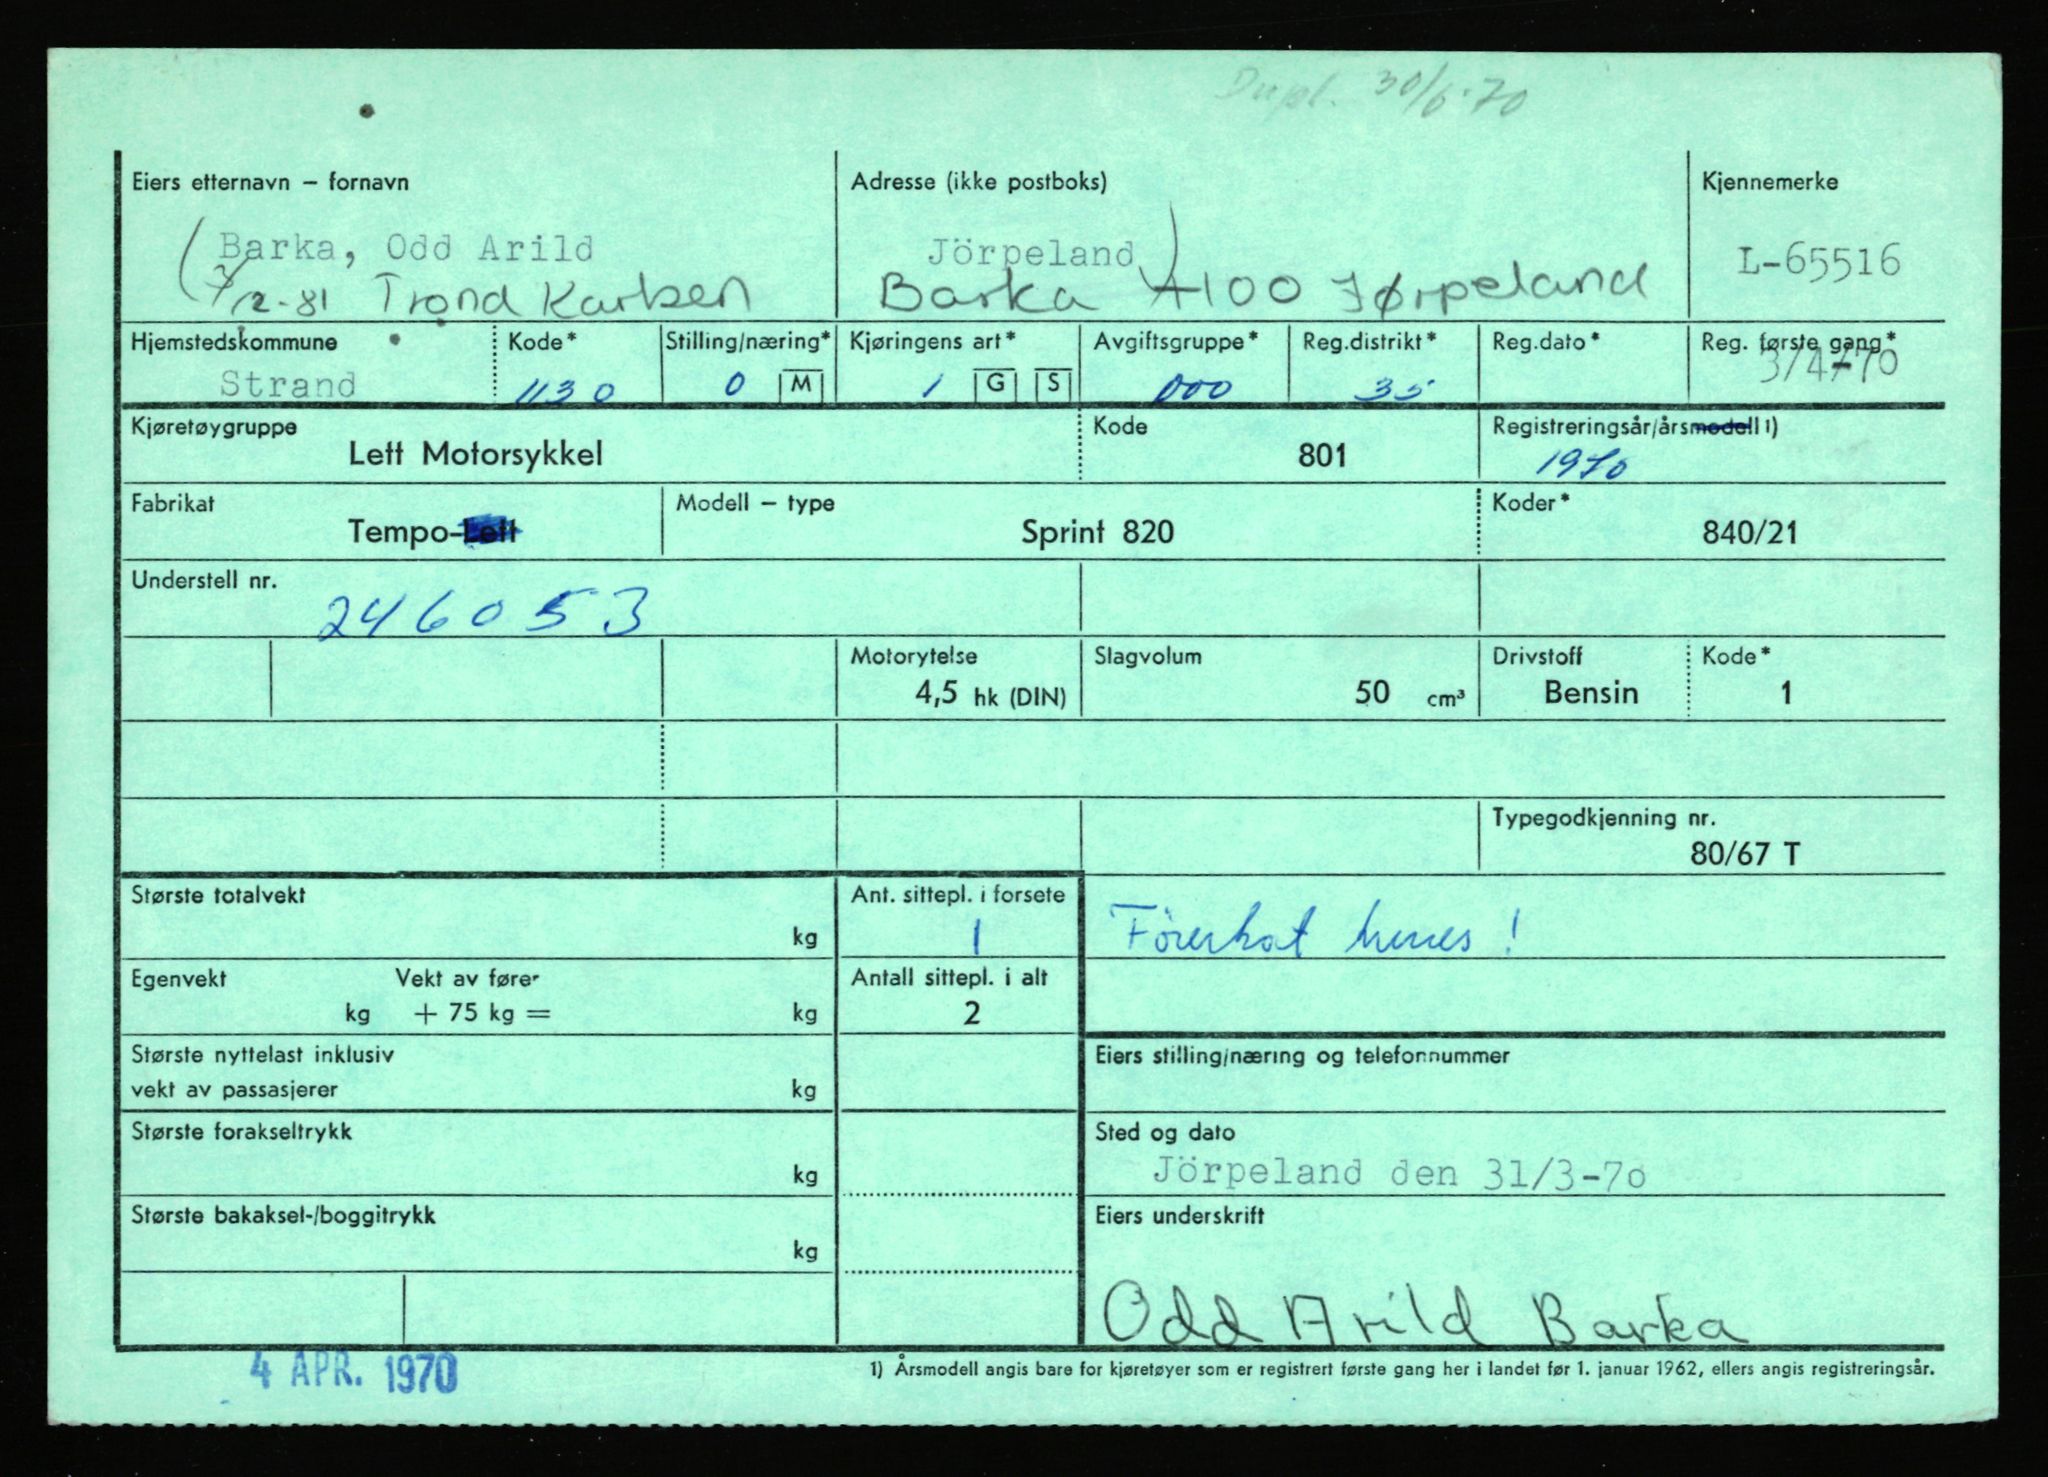 Dupl. 30/6-70
Eiers etternavn – fornavn
Adresse (ikke postboks)
Kjennemerke
(Barka, Odd Arild
Jörpeland)
L-65516
7/12-81 Trond Karlsen
Barka 4100 Jørpeland
Hjemstedskommune Kode* Stilling/næring* Kjøringens art* Avgiftsgruppe* Reg.distrikt* Reg.dato* Reg. første gang*
Strand 1130 0 M 1 G S 000 35 3/4-70
Kjøretøygruppe Kode Registreringsår/årsmodell 1)
Lett Motorsykkel 801 1970
Fabrikat Modell – type Koder*
Tempo-Lett Sprint 820 840/21
Understell nr.
246053
Motorytelse Slagvolum Drivstoff Kode*
4,5 hk (DIN) 50 cm³ Bensin 1
Typegodkjenning nr.
80/67 T
Største totalvekt kg
Ant. sittepl. i forsete
1
Førerkort
Egenvekt Vekt av fører
kg + 75 kg = kg
Antall sittepl. i alt
2
Største nyttelast inklusiv
vekt av passasjerer kg
Eiers stilling/næring og telefonnummer
Største forakseltrykk
kg
Sted og dato
Jörpeland den 31/3-70
Største bakaksel-/boggitrykk
kg
Eiers underskrift
Odd Arild Barka
4 APR. 1970
1) Årsmodell angis bare for kjøretøyer som er registrert første gang her i landet før 1. januar 1962, ellers angis registreringsår.